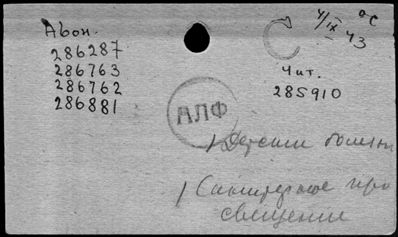 Абон.
286287
286763
286762
286881
4/IX 43
ОС
С
Чит.
285910
АЛФ
1 Детские болезн
1 Санитарное про
свещение